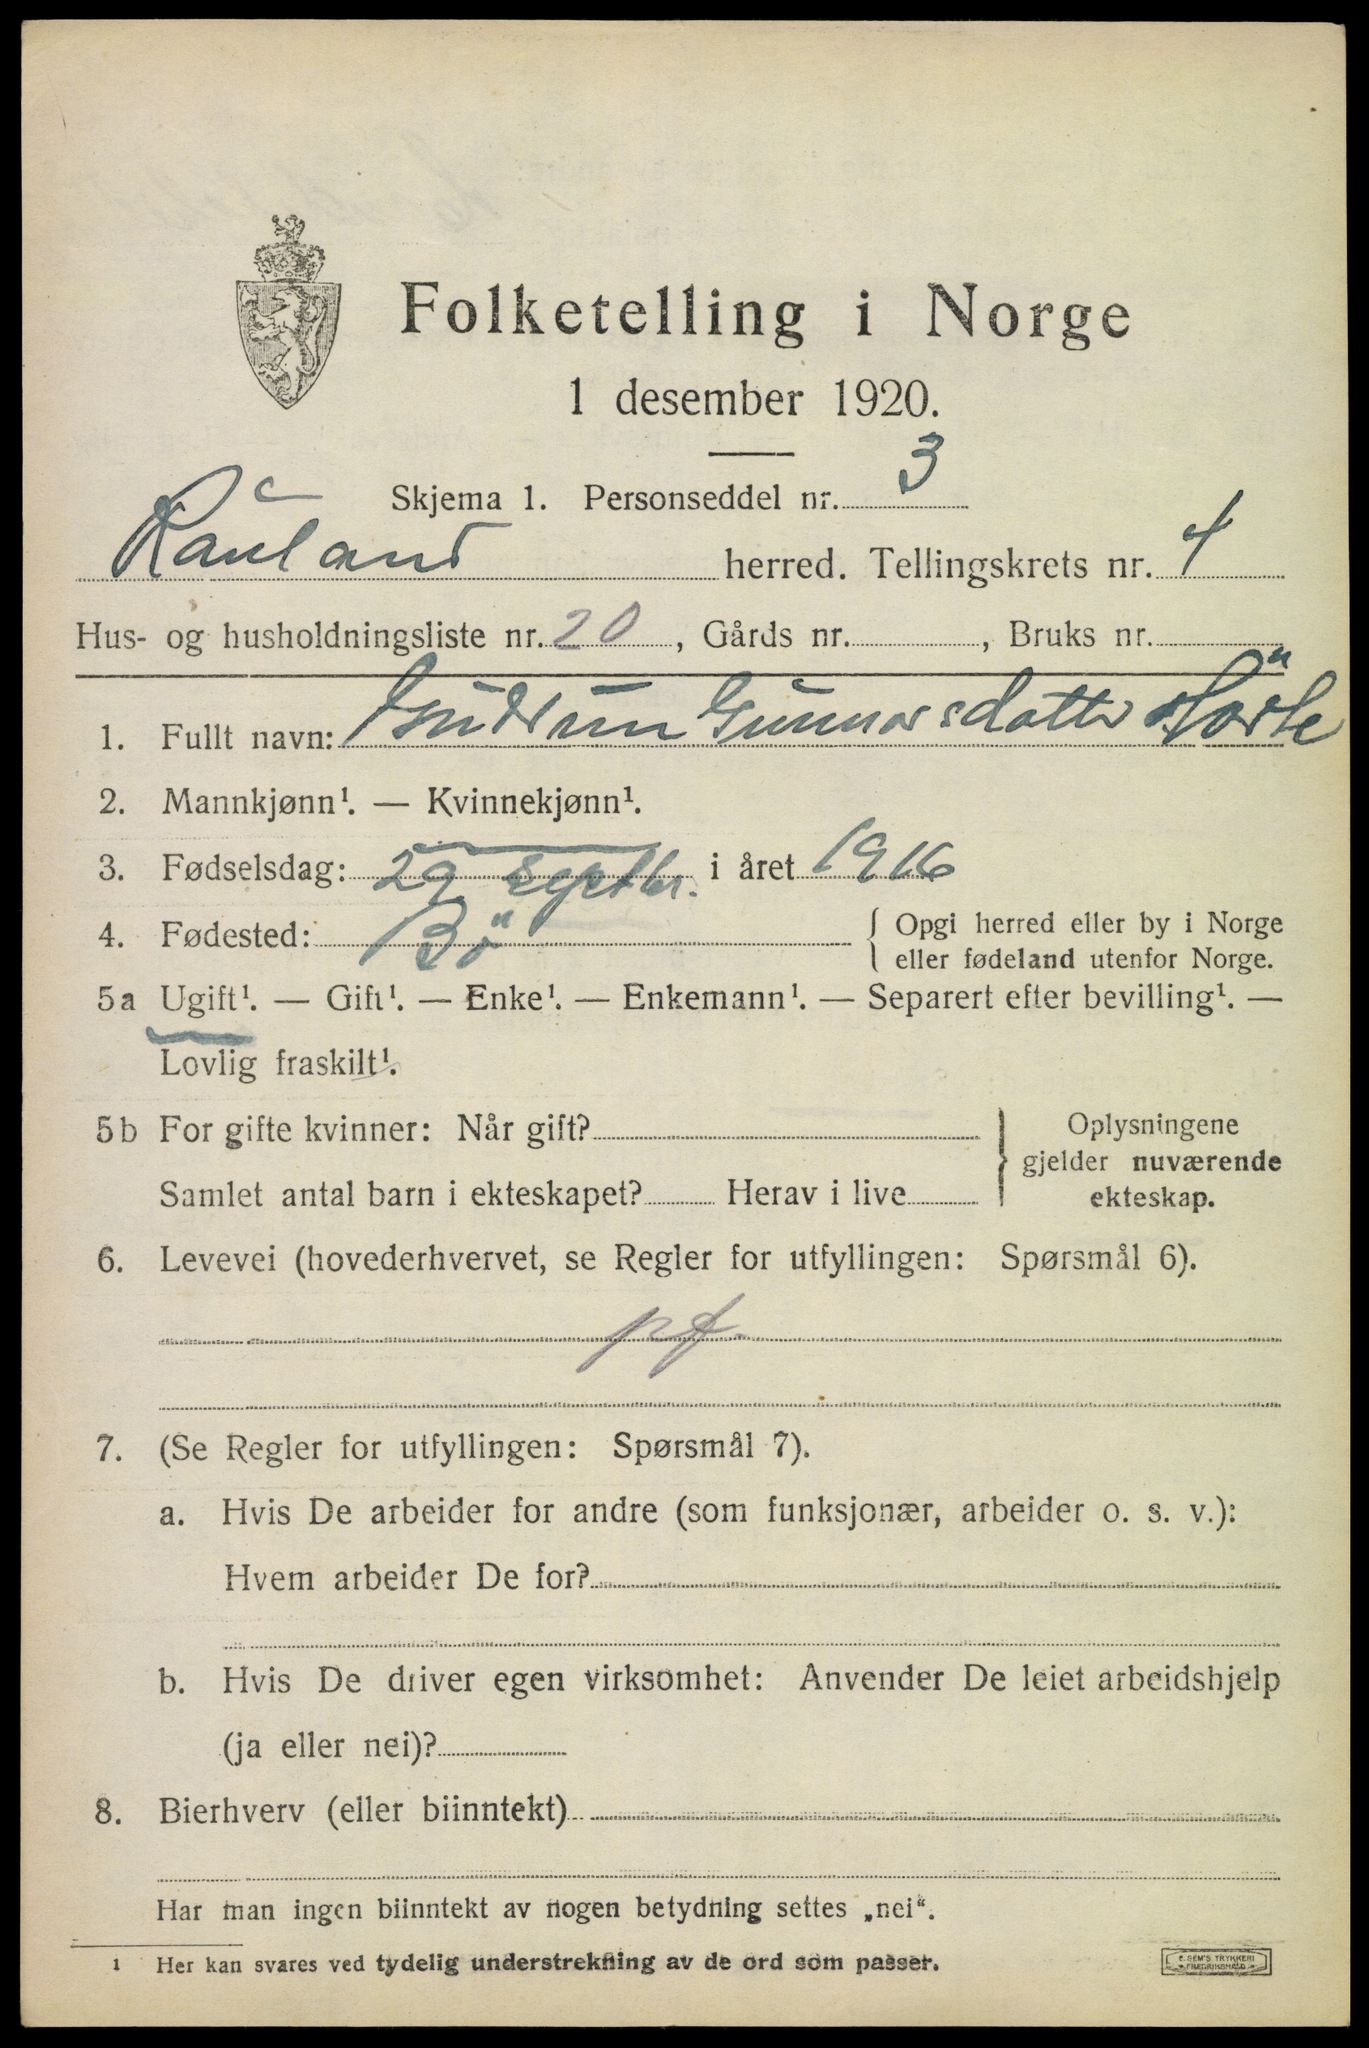 Folketelling i Norge
1 desember 1920.
Skjema 1. Personseddel nr. 3
Rauland herred. Tellingskrets nr. 4
Hus- og husholdningsliste nr. 20, Gårds nr. , Bruks nr.
1. Fullt navn: Gudrun Gunnarsdatter
2. Mannkjønn¹. — Kvinnekjønn¹.
3. Fødselsdag: 29 septbr. i året 1916
4. Fødested: Bö { Opgi herred eller by i Norge
eller fødeland utenfor Norge.
5a Ugift¹. — Gift¹. — Enke¹. — Enkemann¹. — Separert efter bevilling¹. —
Lovlig fraskilt¹.
5b For gifte kvinner: Når gift? } Oplysningene
gjelder nuværende
Samlet antal barn i ekteskapet? Herav i live ekteskap.
6. Levevei (hovederhvervet, se Regler for utfyllingen: Spørsmål 6).
pf.
7. (Se Regler for utfyllingen: Spørsmål 7).
a. Hvis De arbeider for andre (som funksjonær, arbeider o. s. v.):
Hvem arbeider De for?
b. Hvis De driver egen virksomhet: Anvender De leiet arbeidshjelp
(ja eller nei)?
8. Bierhverv (eller biinntekt)
Har man ingen biinntekt av nogen betydning settes „nei“.
1 Her kan svares ved tydelig understrekning av de ord som passer.
E. SEM'S TRYKKERI
FREDRIKSHALD